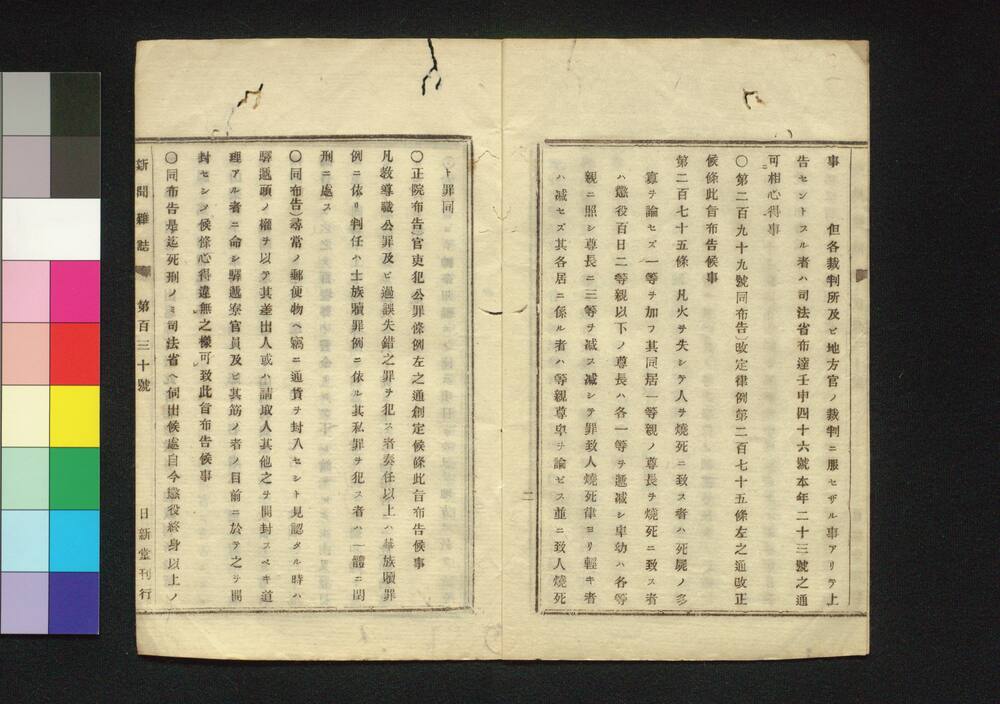 事　但各裁判所及ヒ地方官ノ裁判ニ服セザル事アリテ上
告セントスル者ハ司法省布達壬申四十六號本年二十三號之通
可相心得事
〇第二百九十九號同布告)改定律例第二百七十五條左之通改正
候條此旨布告候事
第二百七十五條　凡火ヲ失シテ人ヲ燒死ニ致ス者ハ死屍ノ多
寡ヲ論セズ一等ヲ加フ其同居一等親ノ尊長ヲ燒死ニ致ス者
ハ懲役百日二等親以下ノ尊長ハ各一等ヲ遞减シ卑幼ハ各等
親ニ照シ尊長ニ三等ヲ减ス减シテ罪致人燒死律ヨリ輕キ者
ハ减セズ其各居ニ係ル者ハ等親尊卑ヲ論ゼス並ニ致人燒死
二
ト罪同
〇正院布告)官吏犯公罪條例左之通創定候條此旨布告候事
凡敎導職公罪及ヒ過誤失錯之罪ヲ犯ス者奏任以上ハ華族贖罪
例ニ依リ判任ハ士族贖罪例ニ依ル其私罪ヲ犯ス者ハ一體ニ閏
刑ニ處ス
〇同布告)尋常ノ郵便物ヘ竊ニ通貨ヲ封入セシト見認タル時ハ
驛遞頭ノ權ヲ以テ其差出人或ハ請取人其他之ヲ開封スベキ道
理アル者ニ命シ驛遞寮官員及ヒ其筋ノ者ノ目前ニ於テ之ヲ開
封セシメ候條心得違無之樣可致此旨布告候事
〇同布告是迄死刑ノミ司法省ヘ伺出候處自今懲役終身以上ノ
新聞雜誌　第百三十號　日新堂刊行